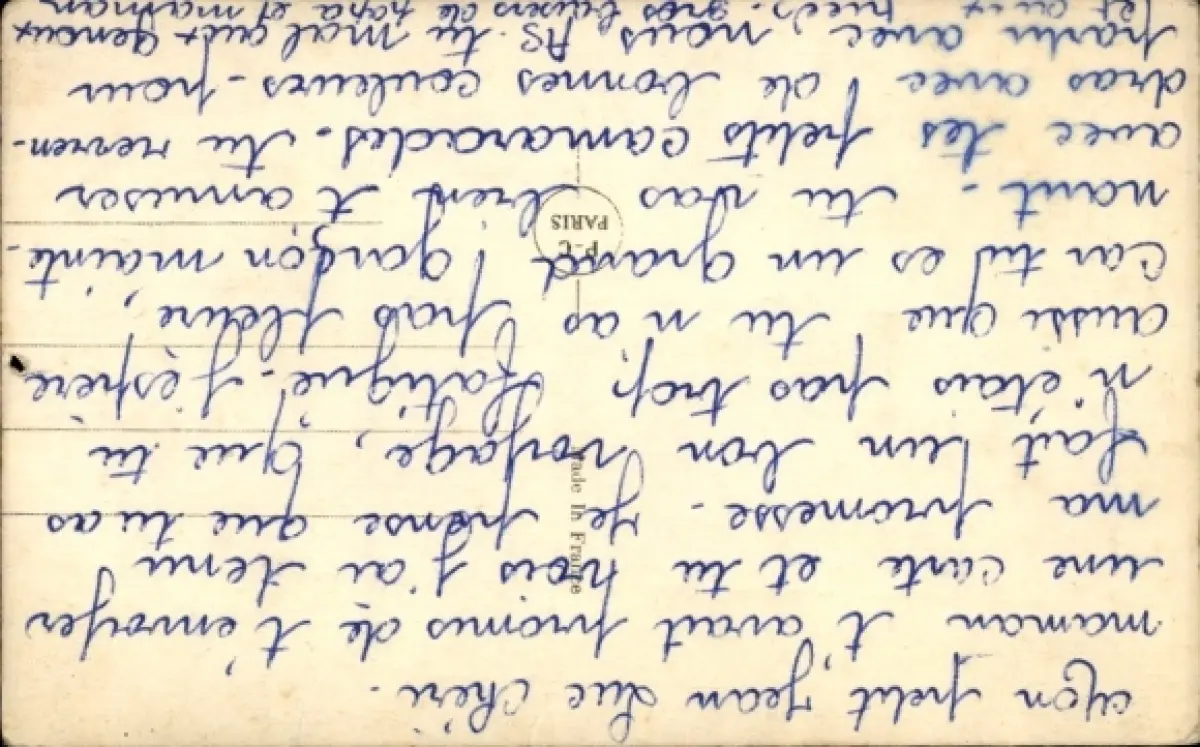 Mon petit Jean Luc chéri.
maman t'avait promis de t'envoyer
une carte et tu vois j'ai tenu
ma promesse. Je pense que tu as
fait un bon voyage, que tu
n'étais pas trop fatigué. J'espère
aussi que tu n as pas pleuré,
car tu es un grand garçon mainte-
nant. tu vas bien t amuser
avec tes petits camarades. tu revien-
dras avec de bonnes couleurs. pour
partir avec nous, PS. tu mal aux genoux
et aux pieds. gros baisers de papa et maman
P-C
PARIS
Made in France